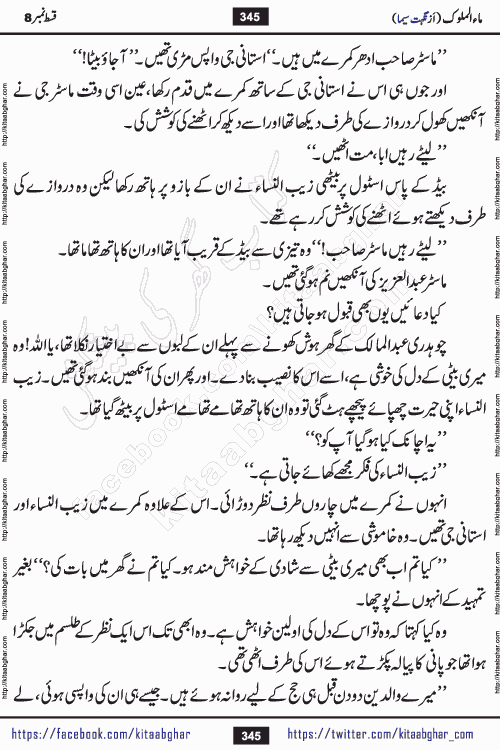 ماء الملوک (از نگہت سیما)
345
قسط نمبر 8
’’ماسٹر صاحب ادھر کمرے میں ہیں۔‘‘ استانی جی واپس مڑی تھیں۔ ’’آ جاؤ بیٹا!‘‘
اور جوں ہی اس نے استانی جی کے ساتھ کمرے میں قدم رکھا، عین اسی وقت ماسٹر جی نے
آنکھیں کھول کر دروازے کی طرف دیکھا تھا اور اسے دیکھ کر اٹھنے کی کوشش کی۔
’’لیٹے رہیں ابا، مت اٹھیں۔‘‘
بیڈ کے پاس اسٹول پر بیٹھی زیب النساء نے ان کے بازو پر ہاتھ رکھا لیکن وہ دروازے کی
طرف دیکھتے ہوئے اٹھنے کی کوشش کر رہے تھے۔
’’لیٹے رہیں ماسٹر صاحب!‘‘ وہ تیزی سے بیڈ کے قریب آیا تھا اور ان کا ہاتھ تھاما تھا۔
ماسٹر عبدالعزیز کی آنکھیں نم ہو گئی تھیں۔
کیا دعائیں یوں بھی قبول ہو جاتی ہیں؟
چوہدری عبدالمالک کے گھر ہوش کھونے سے پہلے ان کے لبوں سے بے اختیار نکلا تھا، یا اللہ! وہ
میری بیٹی کے دل کی خوشی ہے، اسے اس کا نصیب بنا دے۔ اور پھر ان کی آنکھیں بند ہو گئی تھیں۔ زیب
النساء اپنی حیرت چھپائے پیچھے ہٹ گئی تو وہ ان کا ہاتھ تھامے تھامے اسٹول پر بیٹھ گیا تھا۔
’’یہ اچانک کیا ہو گیا آپ کو؟‘‘
’’زیب النساء کی فکر مجھے کھائے جاتی ہے۔‘‘
انہوں نے کمرے میں چاروں طرف نظر دوڑائی۔ اس کے علاوہ کمرے میں زیب النساء اور
استانی جی تھیں۔ وہ خاموشی سے انہیں دیکھ رہا تھا۔
’’کیا تم اب بھی میری بیٹی سے شادی کے خواہش مند ہو۔ کیا تم نے گھر میں بات کی؟‘‘ بغیر
تمہید کے انہوں نے پوچھا۔
وہ کیا کہتا کہ وہ تو اس کے دل کی اولین خواہش ہے۔ وہ ابھی تک اس ایک نظر کے طلسم میں جکڑا
ہوا تھا جو پانی کا پیالہ پکڑتے ہوئے اس کی طرف اٹھی تھی۔
’’میرے والدین دو دن قبل ہی حج کے لیے روانہ ہوئے ہیں۔ جیسے ہی ان کی واپسی ہوئی، لے
https://facebook.com/kitaabghar
345
https://twitter.com/kitaabghar_com
http://kitaabghar.com
http://kitaabghar.com
http://kitaabghar.com
http://kitaabghar.com
http://kitaabghar.com
http://kitaabghar.com
http://kitaabghar.com
http://kitaabghar.com
کتاب گھر کی پیشکش
facebook.com/kitaabghar
kitaabghar.com